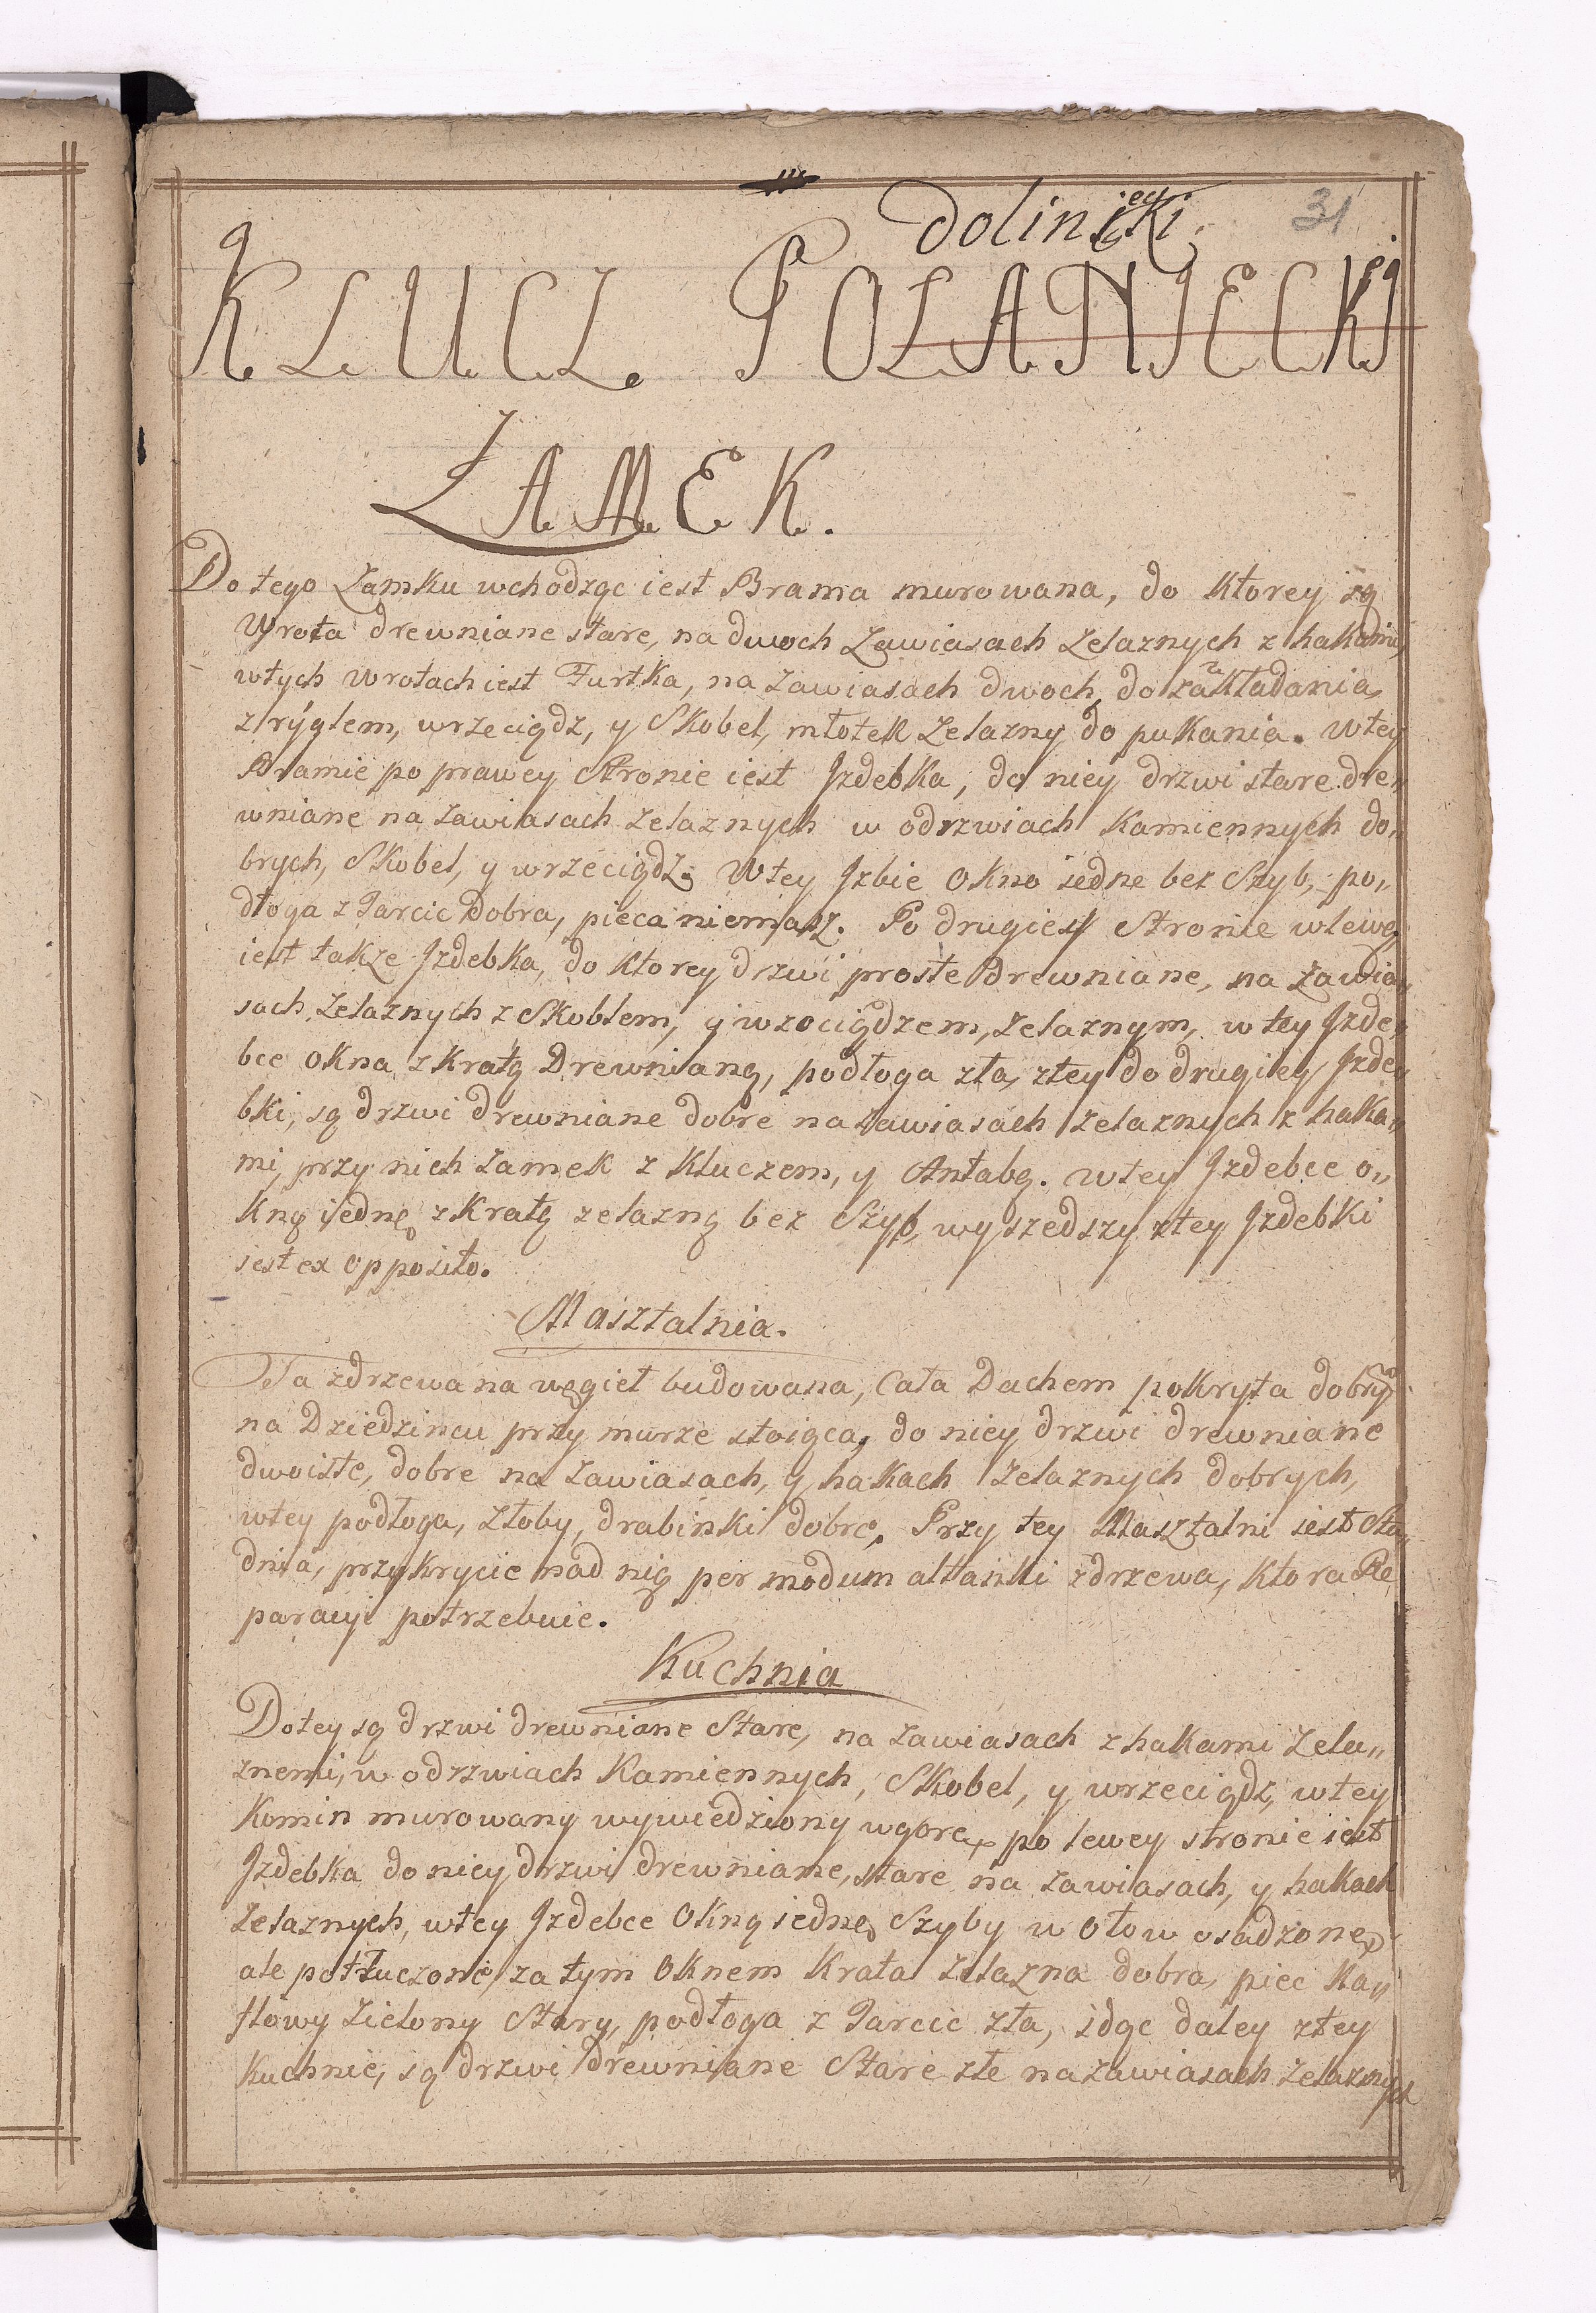 doliniecki
31
KLUCZ POLANIECKI
ZAMEK.
Do tego Zamku wchodząc iest Brama murowana, do Ktorey są
Wrota drewniane stare, na dwoch Zawiasach Zelaznych z hakami,
wtych wrotach iest Furtka, na zawiasach dwoch, do zakładania,
z ryglem, wrzeciądz, y Skobel, młotek Zelazny do pukania. Wtey
Bramie po prawey Stronie iest Jzdebka, do niey drzwi stare dre„
wniane na zawiasach zelaznych w odrzwiach Kamiennych do„
brych, Skobel, y wrzeciądz. Wtey Jzbie Okno iedne bez Szyb, po„
dłoga z Tarcic Dobra, pieca niemasz. Po drugiey Stronie wlewey
iest takze Jzdebka, do Ktorey drzwi proste Drewniane, na Zawia„
sach zelaznych z Skoblem, y wrzeciądzem, zelaznym, w tey Jzde„
bce okna z Kratą Drewnianą, podłoga zła, ztey do drugiey Jzde„
bki, są drzwi drewniane dobre na zawiasach zelaznych z haka„
mi, przy nich zamek z Kluczem, y Antabą. wtey Jzdebce o„
kno iedne z Kratą zelazną bez Szyb, wyszedszy ztey Jzdebki
iest ex opposito.
Masztalnia.
Ta zdrzewa na węgieł budowana, Cała Dachem pokryta dobrym
na Dziedzincu przy murze stoiąca, do niey drzwi drewniane
dwoiste, dobre na zawiasach, y hakach zelaznych dobrych,
wtey podłoga, Złoby, drabinki dobre, Przy tey Masztalni iest Stu„
dnia, przykrycie nad nią per modum altanki zdrzewa, Ktora Re
paracyi potrzebuie.
Kuchnia
Dotey są drzwi drewniane Stare, na zawiasach z hakami Zela„
znemi, w odrzwiach Kamiennych, Skobel, y wrzeciądz, wtey
Komin murowany wywiedziony wgorę, po lewey stronie iest
Jzdebka do niey drzwi drewniane, stare na zawiasach, y hakach
Zelaznych, wtey Jzdebce Okno iedne, Szyby w Ołow osadzone,
ale potłuczone, za tym Oknem Krata Zelazna dobra, piec Ka„
flowy Zielony Stary, podłoga z Tarcic zła, idąc daley ztey
Kuchnie, są drzwi drewniane Stare złe na zawiasach zelaznych